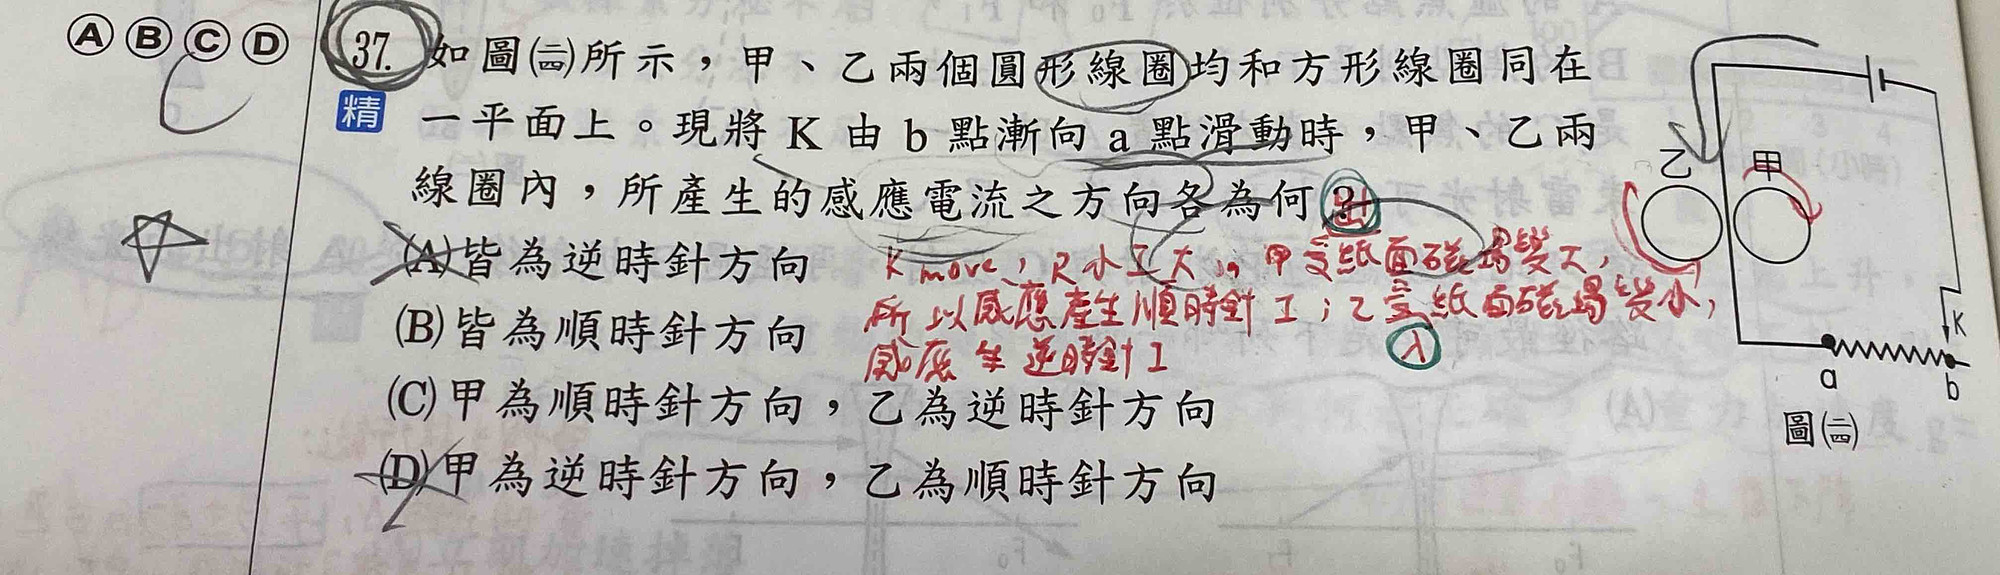 Ⓐ Ⓑ Ⓒ Ⓓ
C
37. 如圖(二四)所示，甲、乙兩個圓形線圈均和方形線圈同在
精
一平面上。現將 K 由 b 點漸向 a 點滑動時，甲、乙兩
線圈內，所產生的感應電流之方向各為何？
出
(A)皆為逆時針方向
K move，R小I大，甲受紙面磁場變大，
(B)皆為順時針方向
所以感應產生順時針I；乙受紙面磁場變小，
入
感應生逆時針I
(C)甲為順時針方向，乙為逆時針方向
(D)甲為逆時針方向，乙為順時針方向
乙 甲
K
a b
圖(二四)